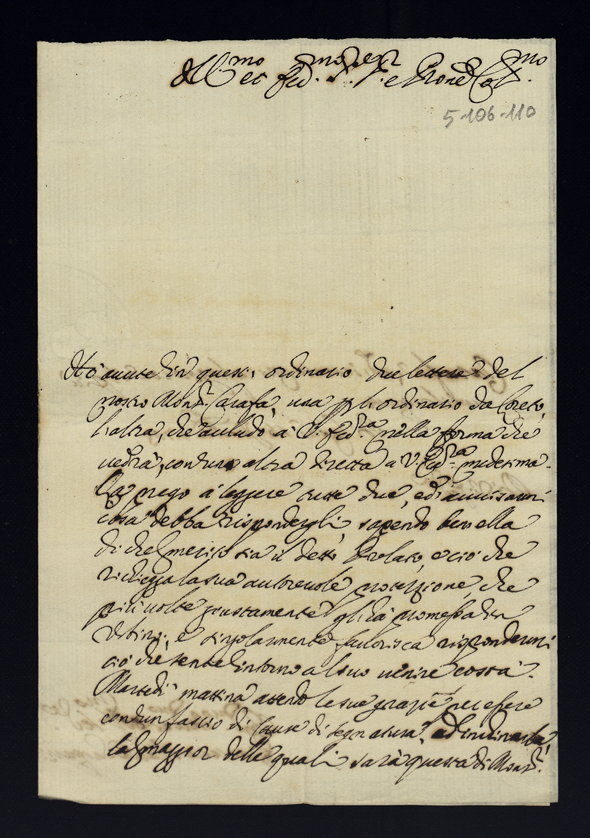 Ill.mo et Ecc.mo Sig.r e Prone Col.mo
5-106-110
Hò avute in quest'ordinario due lettere del
nostro Mons.r Carafa, una p l'ordinario da Loreto,
l'altra, che accludo à V. Ecc.za nella forma che
vedrà, con un'altra diretta a V. Ecc.za medesima.
La prego a leggere tutte due, ed avvisarmi
cosa debba rispondergli, sapendo ben ella
di che merito sia il detto Prelato, e ciò che
richieda la sua autorevole protezzione, che
più volte giustamente gli hà promessa in
Urbino; e singolarmente favorisca rispondermi
ciò che sente intorno al suo venire costà.
Martedì mattina attendo le sue grazie per essere
con un fascio di cause di segnatura, ad
la maggior delle quali sarà questa di Mons.r